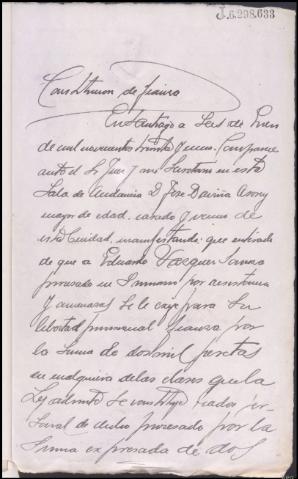 J.6.298.633
Constitucion de fianza
En Santiago a Seis de Enero
de mil novecientos treinta y uno. Comparece
ante el Sr Juez y mi Secretario en esta
Sala de Audiencia D. Jose Daviña
mayor de edad, casado y vecino de
esta Ciudad, manifestando: que enterado
de que a Eduardo Vazquez
procesado en Sumario por resistencia
y amenazas se le exige para su
libertad provisional fianza por
la suma de dos mil pesetas
en cualquiera de las clases que la
Ley admite se constituye fiador per-
sonal de dicho procesado por la
suma expresada de dos